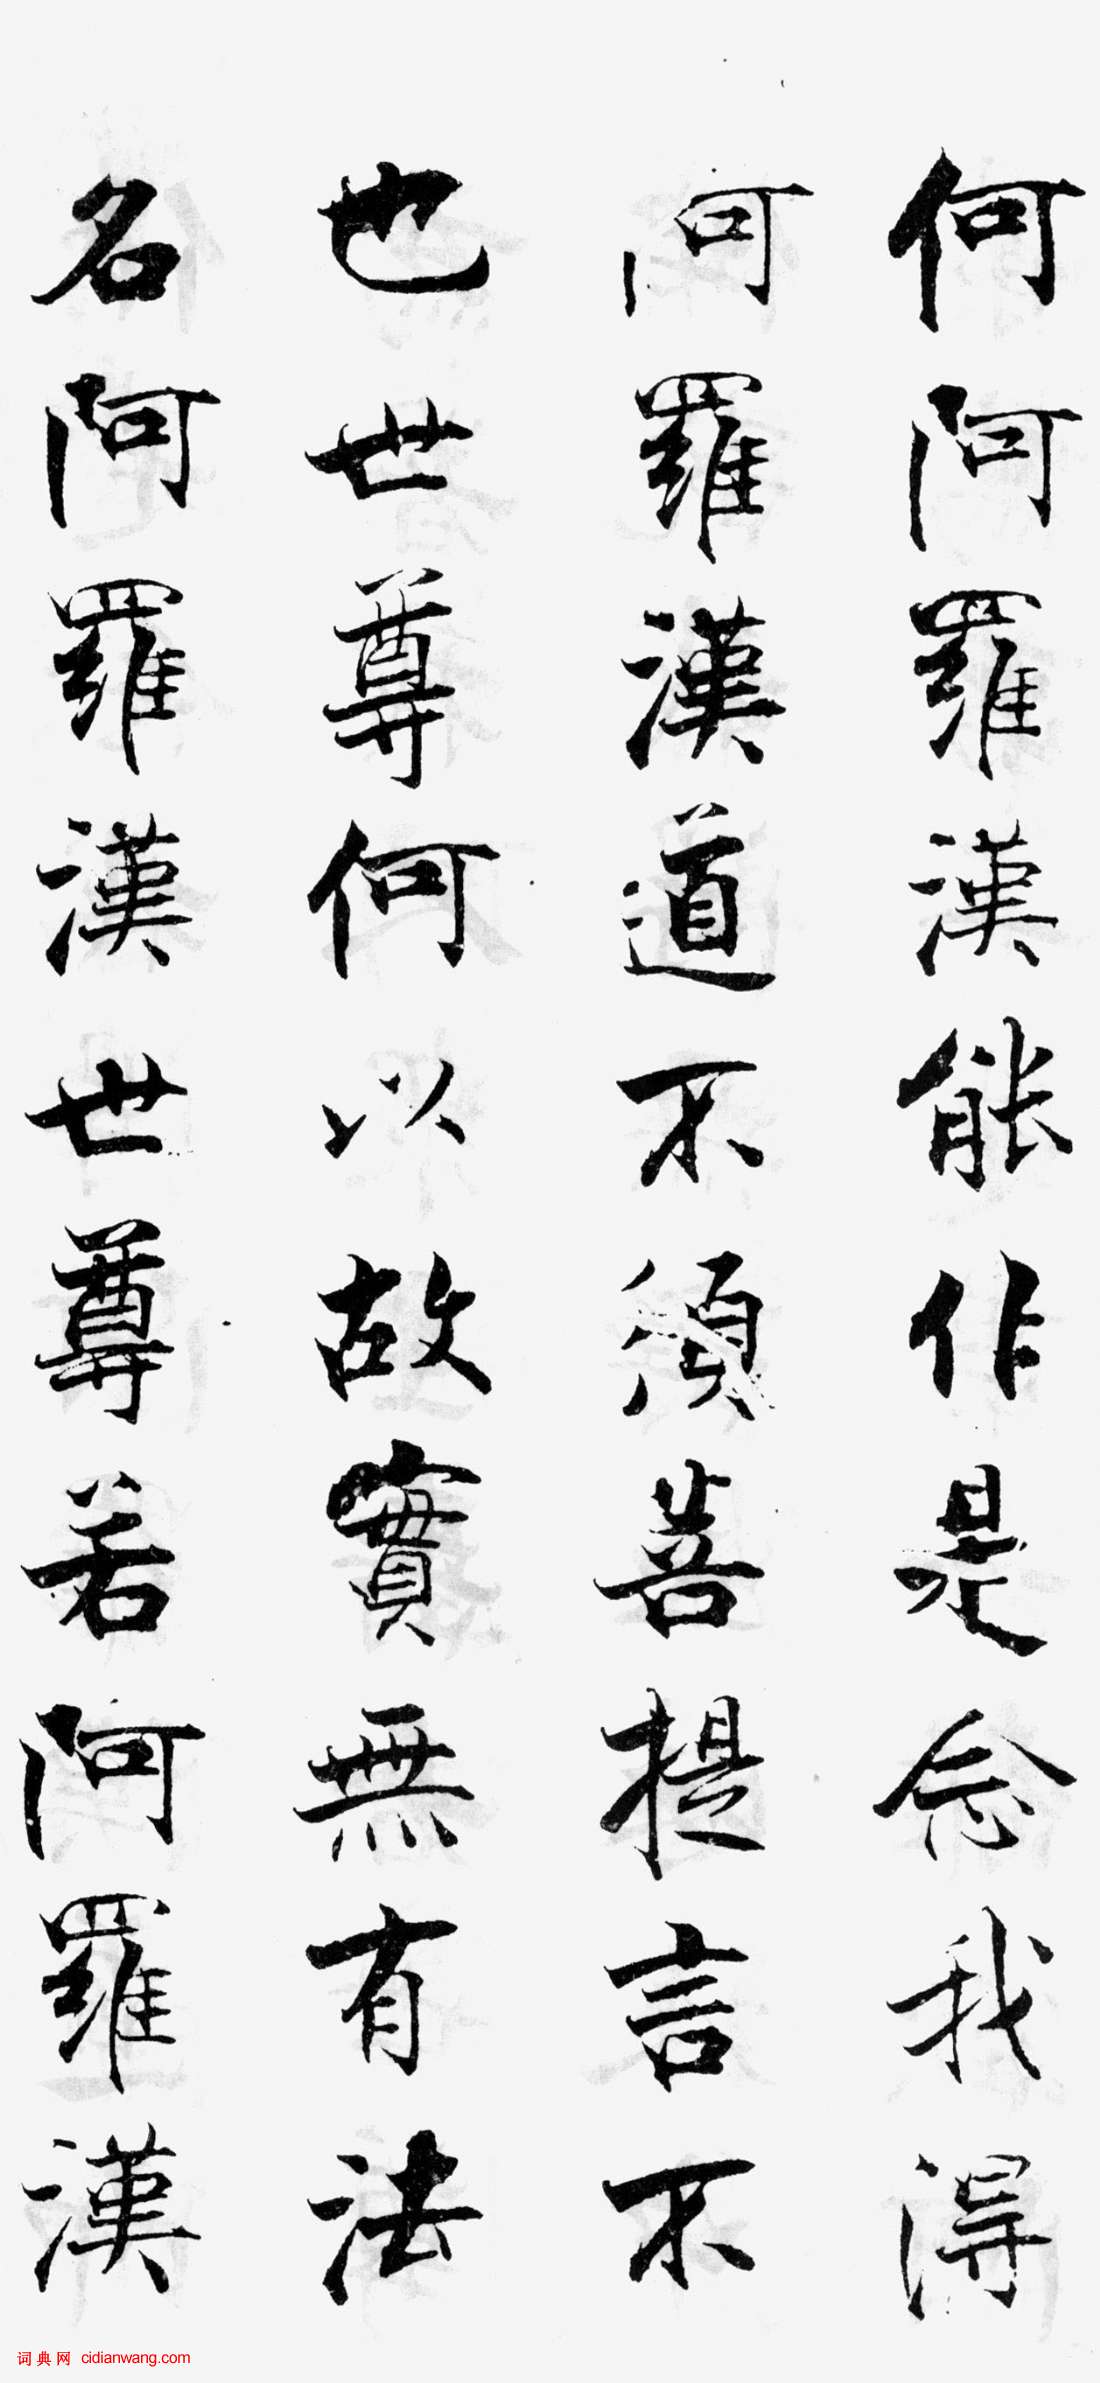 何阿羅漢能作是念我得
阿羅漢道不須菩提言不
也世尊何以故實無有法
名阿羅漢世尊若阿羅漢
词典网 cidianwang.com